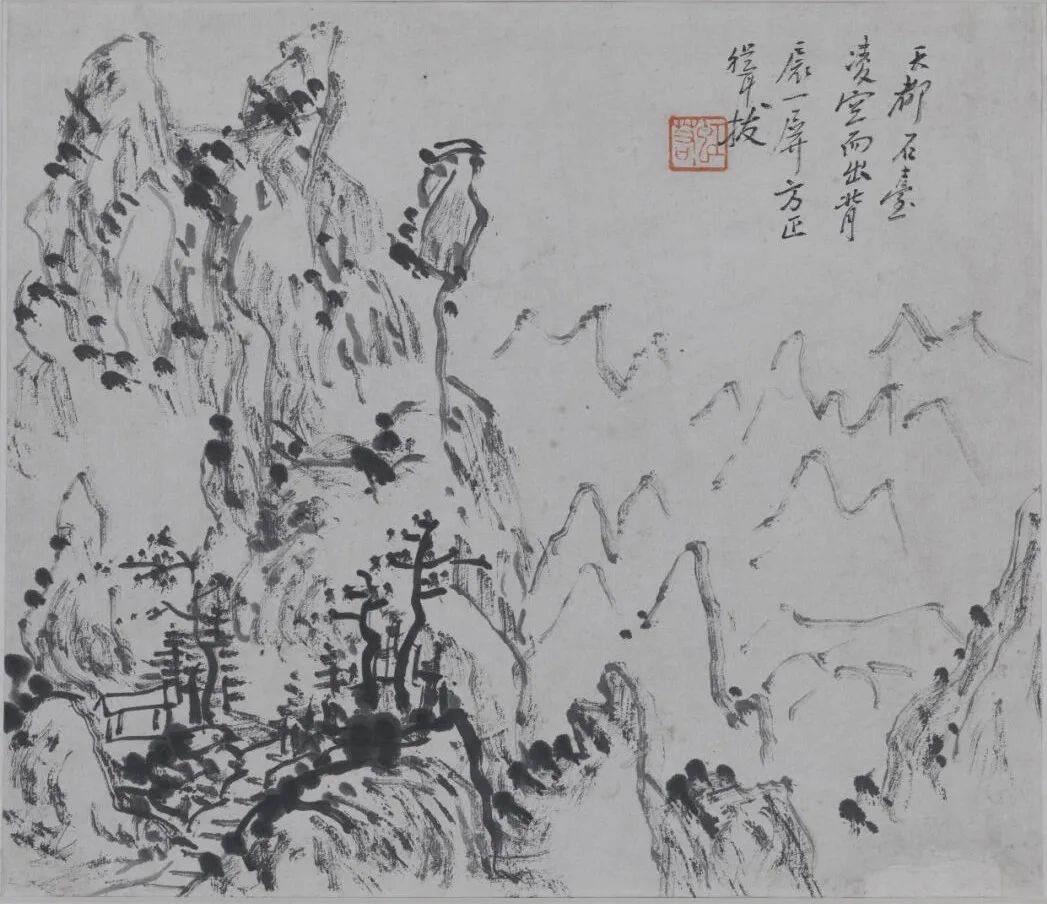 天都石臺
凌空而出背
扆一屏方正
聳拔